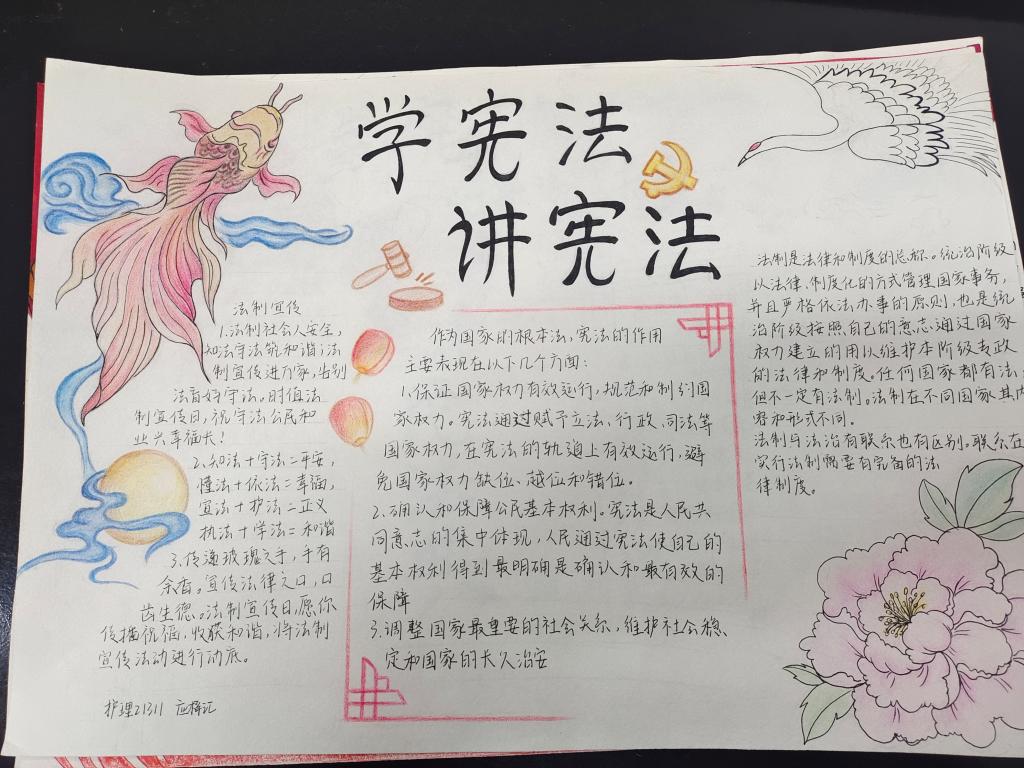 学宪法
讲宪法
法制宣传
1.法制社会人安全,
知法守法筑和谐;法
制宣传进万家,告别
法盲好守法。时值法
制宣传日,祝守法公民和
业兴幸福长!
2、知法+守法=平安,
懂法+依法=幸福,
宣法+护法=正义
执法+学法=和谐
3.传递玫瑰之手,手有
余香。宣传法律之口,口
齿生德。法制宣传日,愿你
传播祝福,收获和谐,将法制
宣传法动进行动底。
护理21311
作为国家的根本法,宪法的作用
主要表现在以下几个方面:
1.保证国家权力有效运行,规范和制约国
家权力。宪法通过赋予立法、行政、司法等
国家权力,在宪法的轨道上有效运行,避
免国家权力缺位、越位和错位。
2.确认和保障公民基本权利。宪法是人民共
同意志的集中体现,人民通过宪法使自己的
基本权利得到最明确是确认和最有效的
保障
3.调整国家最重要的社会关系,维护社会稳、
定和国家的长久治安
法制是法律和制度的总称。统治阶级
以法律、制度化的方式管理国家事务,
并且严格依法办事的原则,也是统
治阶级按照自己的意志通过国家
权力建立的用以维护本阶级专政
的法律和制度。任何国家都有法
但不一定有法制。法制在不同国家其内
容和形式不同。
法制与法治有联系也有区别。联系在
实行法制需要有完备的法
律制度。